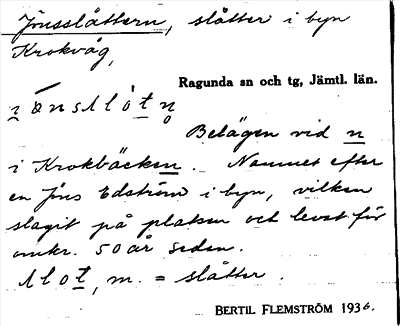 Jönsslåttern, slåtter i byn
Krokvåg,
Ragunda sn och tg, Jämtl. län.
Belägen vid n
i Krokbäcken. Namnet efter
en Jöns Edström i byn, vilken
slagit på platsen och levat för
omkr. 50 år sedan.
slot, m. = slåtter.
BERTIL FLEMSTRÖM 1936.